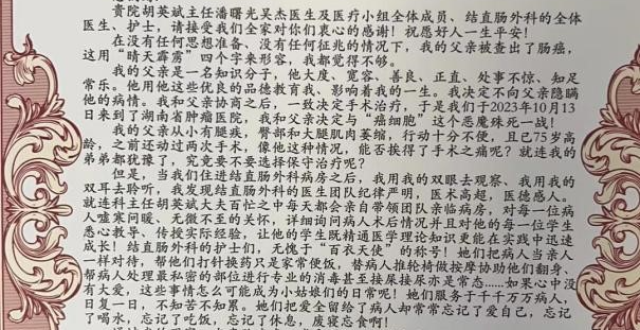 贵院胡英斌主任潘曙光吴杰医生及医疗小组全体成员、结直肠外科的全体
医生、护士,请接受我们全家对你们衷心的感谢!祝愿好人一生平安!
在没有任何思想准备、没有任何征兆的情况下,我的父亲被查出了肠癌,
这用“晴天霹雳”四个字来形容,我都觉得不够。
我的父亲是一名知识分子,他大度、宽容、善良、正直、处事不惊、知足
常乐。他用他这些优良的品德教育我、影响着我的一生。我决定不向父亲隐瞒
他的病情。我和父亲协商之后,一致决定手术治疗,于是我们于2023年10月13
日来到了湖南省肿瘤医院,我和父亲决定与“癌细胞”这个恶魔殊死一战!
我的父亲从小有腿疾,臀部和大腿肌肉萎缩,行动十分不便,且已75岁高
龄,之前还动过两次手术,像他这种情况,能否挨得了手术之痛呢?就连我的
弟弟都犹豫了,究竟要不要选择保守治疗呢?
但是,当我们住进结直肠外科病房之后,我用我的双眼去观察、我用我的
双耳去聆听,我发现结直肠外科的医生团队纪律严明,医术高超,医德感人。
就连科主任胡英斌大夫百忙之中每天都会亲自带领团队亲临病房,对每一位病
人嘘寒问暖、无微不至的关怀,详细询问病人术后情况并且对他的每一位学生
悉心教导、传授实际经验,让他的学生既精通医学理论知识更能在实践中迅速
成长!结直肠外科的护士们,无愧于“百衣天使”的称号!她们把病人当亲人
一样对待,帮他们打针换药只是家常便饭,替病人推轮椅做按摩协助他们翻身、
帮病人处理最私密的部位进行专业的消毒甚至接屎接尿亦是常态……如果心中没
有大爱,这些事情怎么可能成为小姑娘们的日常呢!她们服务于千千万万病人,
日复一日,不知苦不知累。她们把爱全留给了病人却常常忘记了爱自己,忘记
了喝水,忘记了吃饭,忘记了休息,废寝忘食啊!